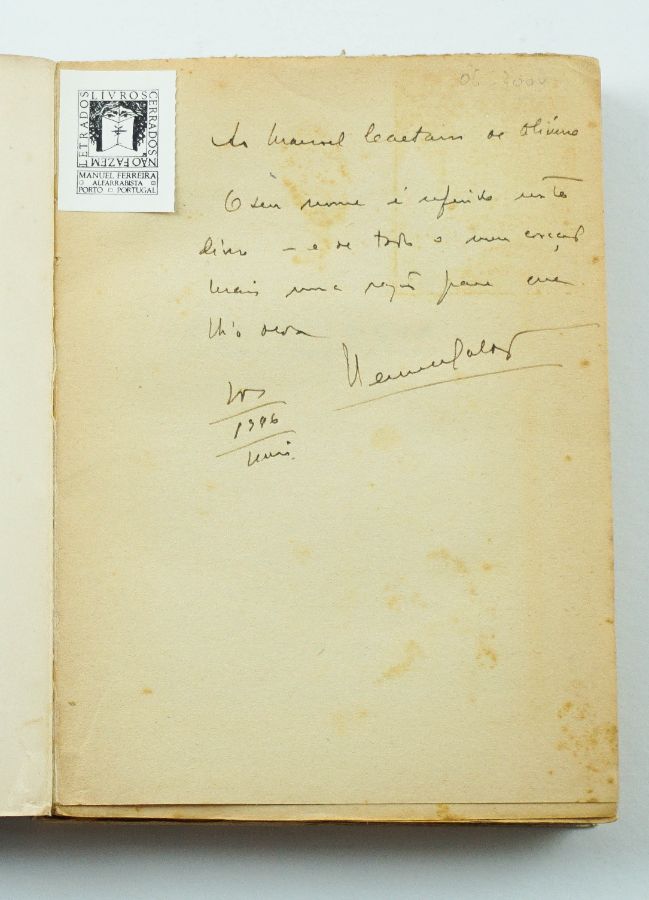 LIVROS
CERRADOS
NÃO FAZEM
LETRADOS
MANUEL FERREIRA
ALFARRABISTA
PORTO PORTUGAL
Ao Manuel Caetano de Oliveira
O seu nome é referido neste
livro – e de todo o meu coração
mais uma razão para que
lh'o
1946